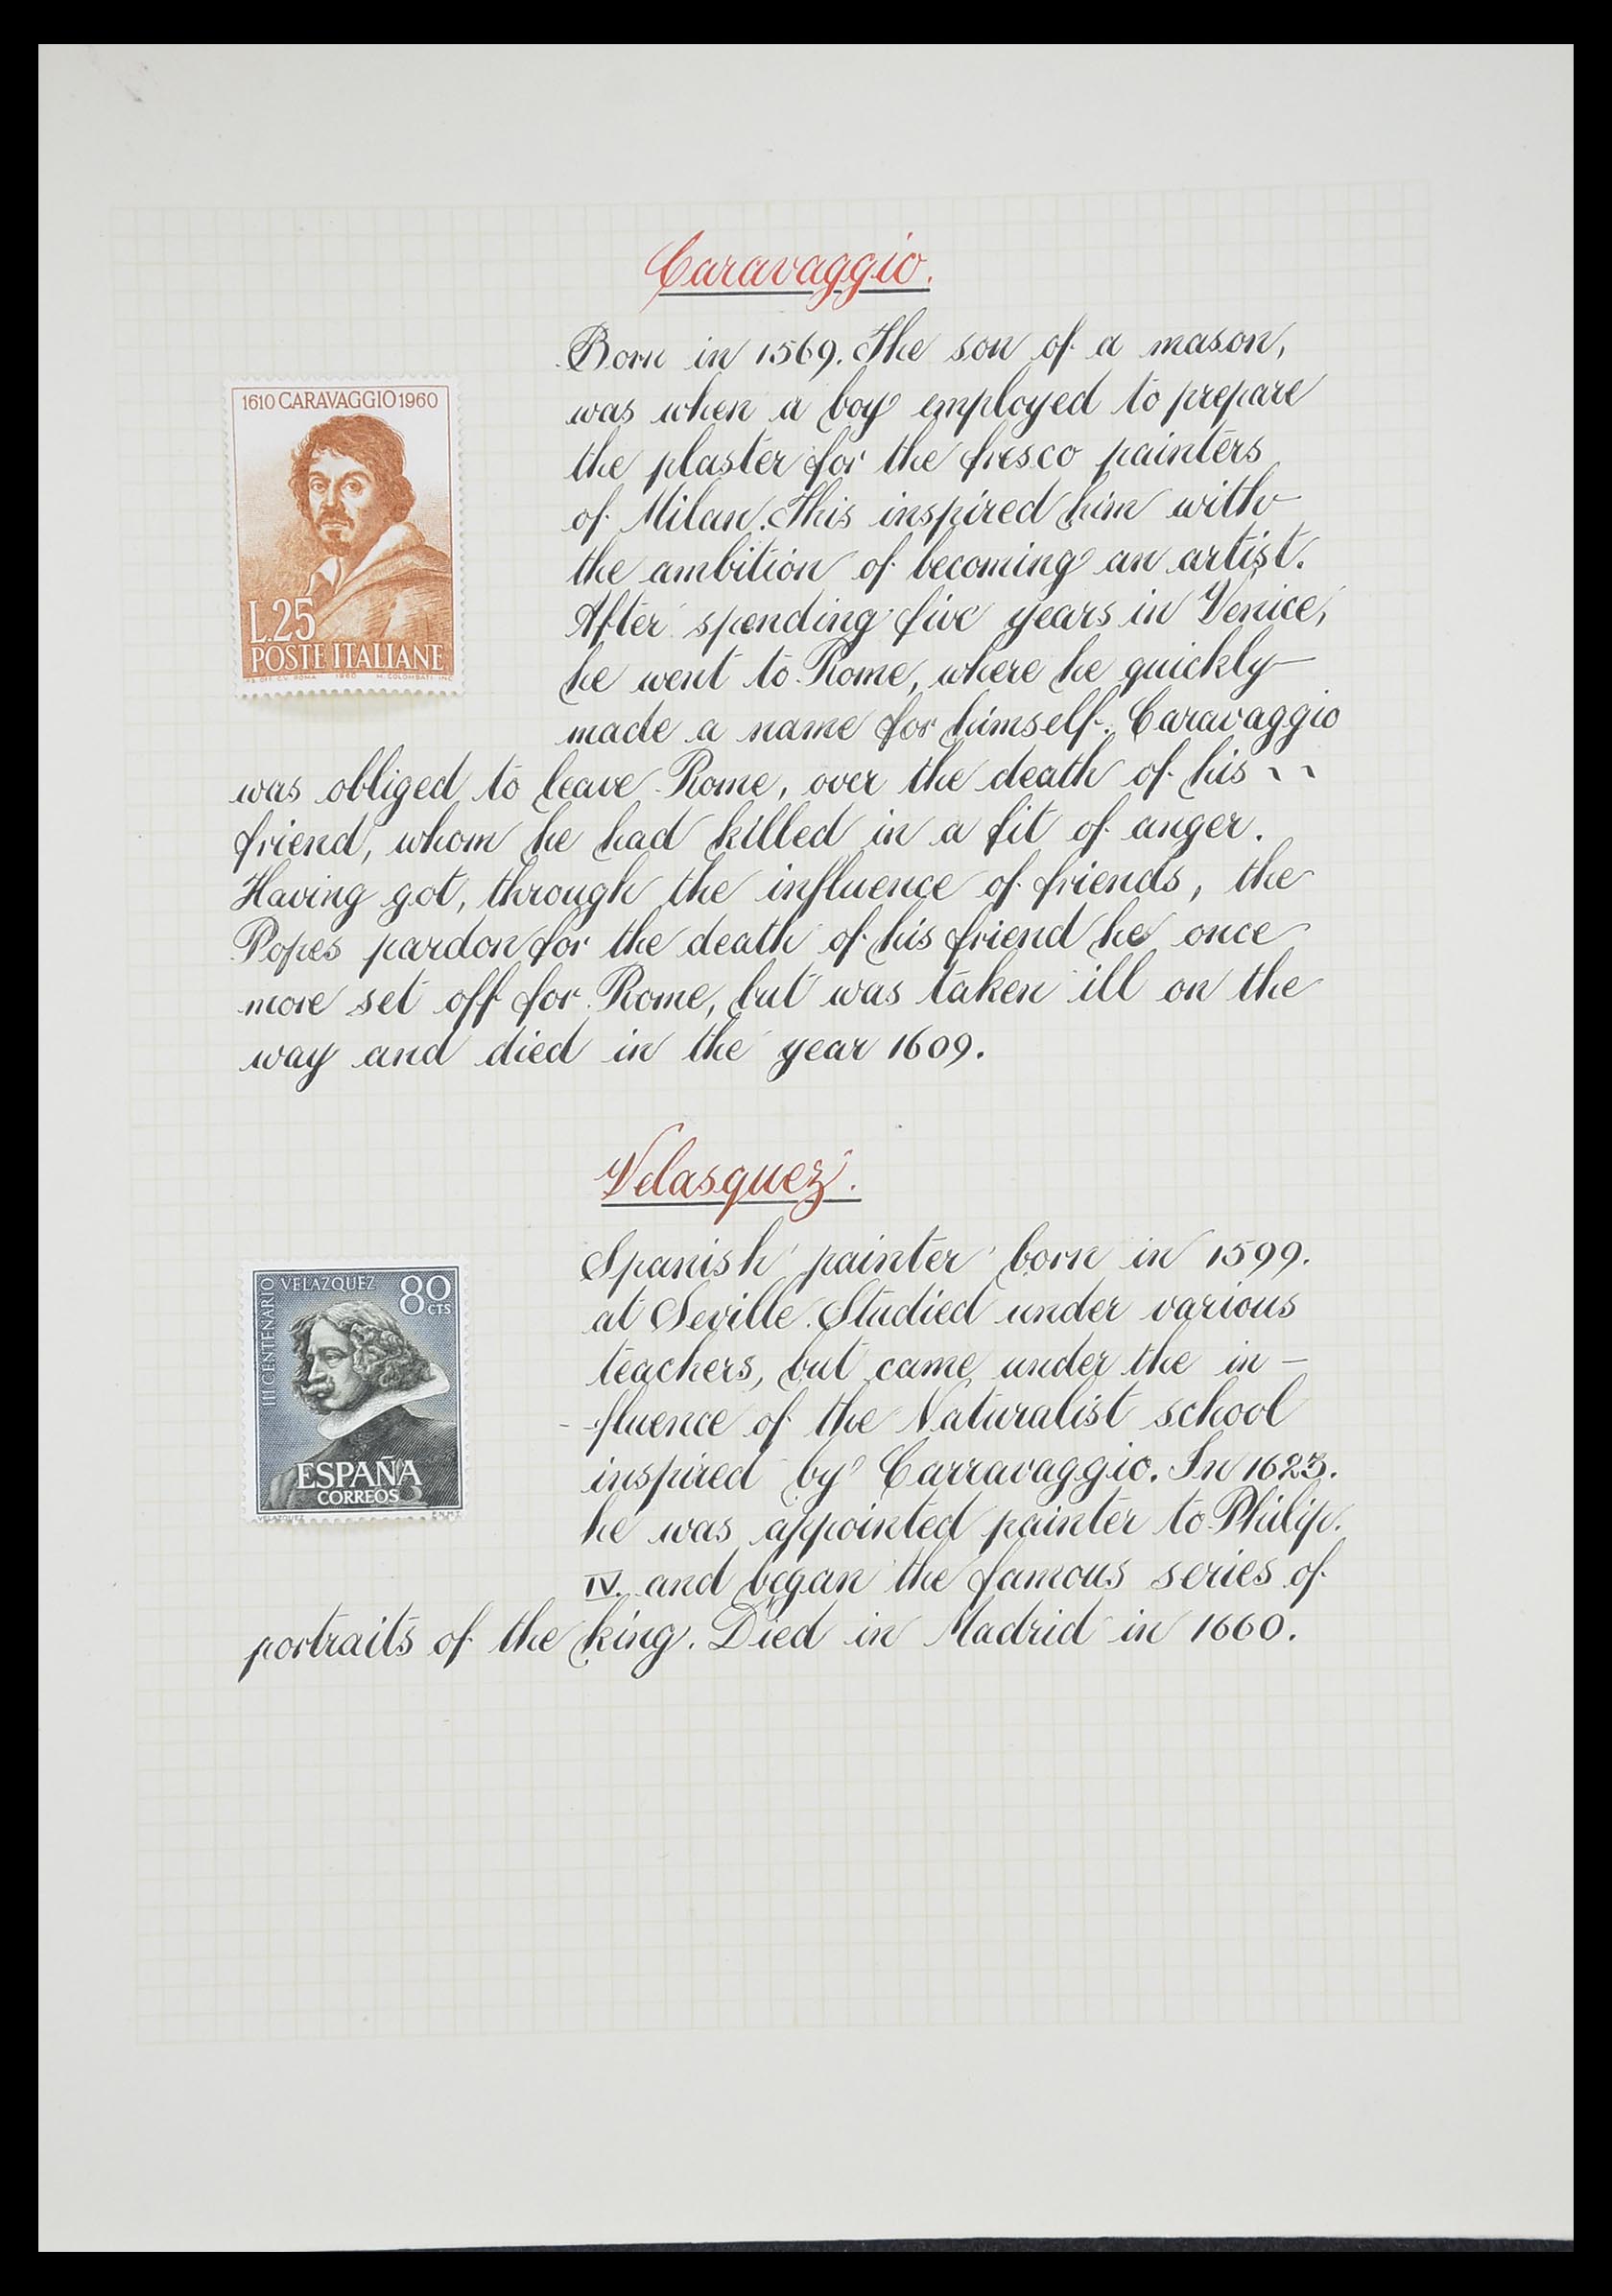 Caravaggio.
Born in 1569. The son of a mason,
was when a boy employed to prepare
the plaster for the fresco painters
of Milan. This inspired him with
the ambition of becoming an artist.
After spending five years in Venice,
he went to Rome, where he quickly
made a name for himself. Caravaggio
was obliged to leave Rome, over the death of his
friend, whom he had killed in a fit of anger.
Having got, through the influence of friends, the
Popes pardon for the death of his friend he once
more set off for Rome, but was taken ill on the
way and died in the year 1609.
1610 CARAVAGGIO 1960
L.25
POSTE ITALIANE
1960
Velasquez.
Spanish painter born in 1599.
at Seville. Studied under various
teachers, but came under the in-
-fluence of the Naturalist school
inspired by Carravaggio. In 1623.
he was appointed painter to Philip.
IV. and began the famous series of
portraits of the king. Died in Madrid in 1660.
III CENTENARIO VELAZQUEZ
80
CTS
ESPAÑA
CORREOS